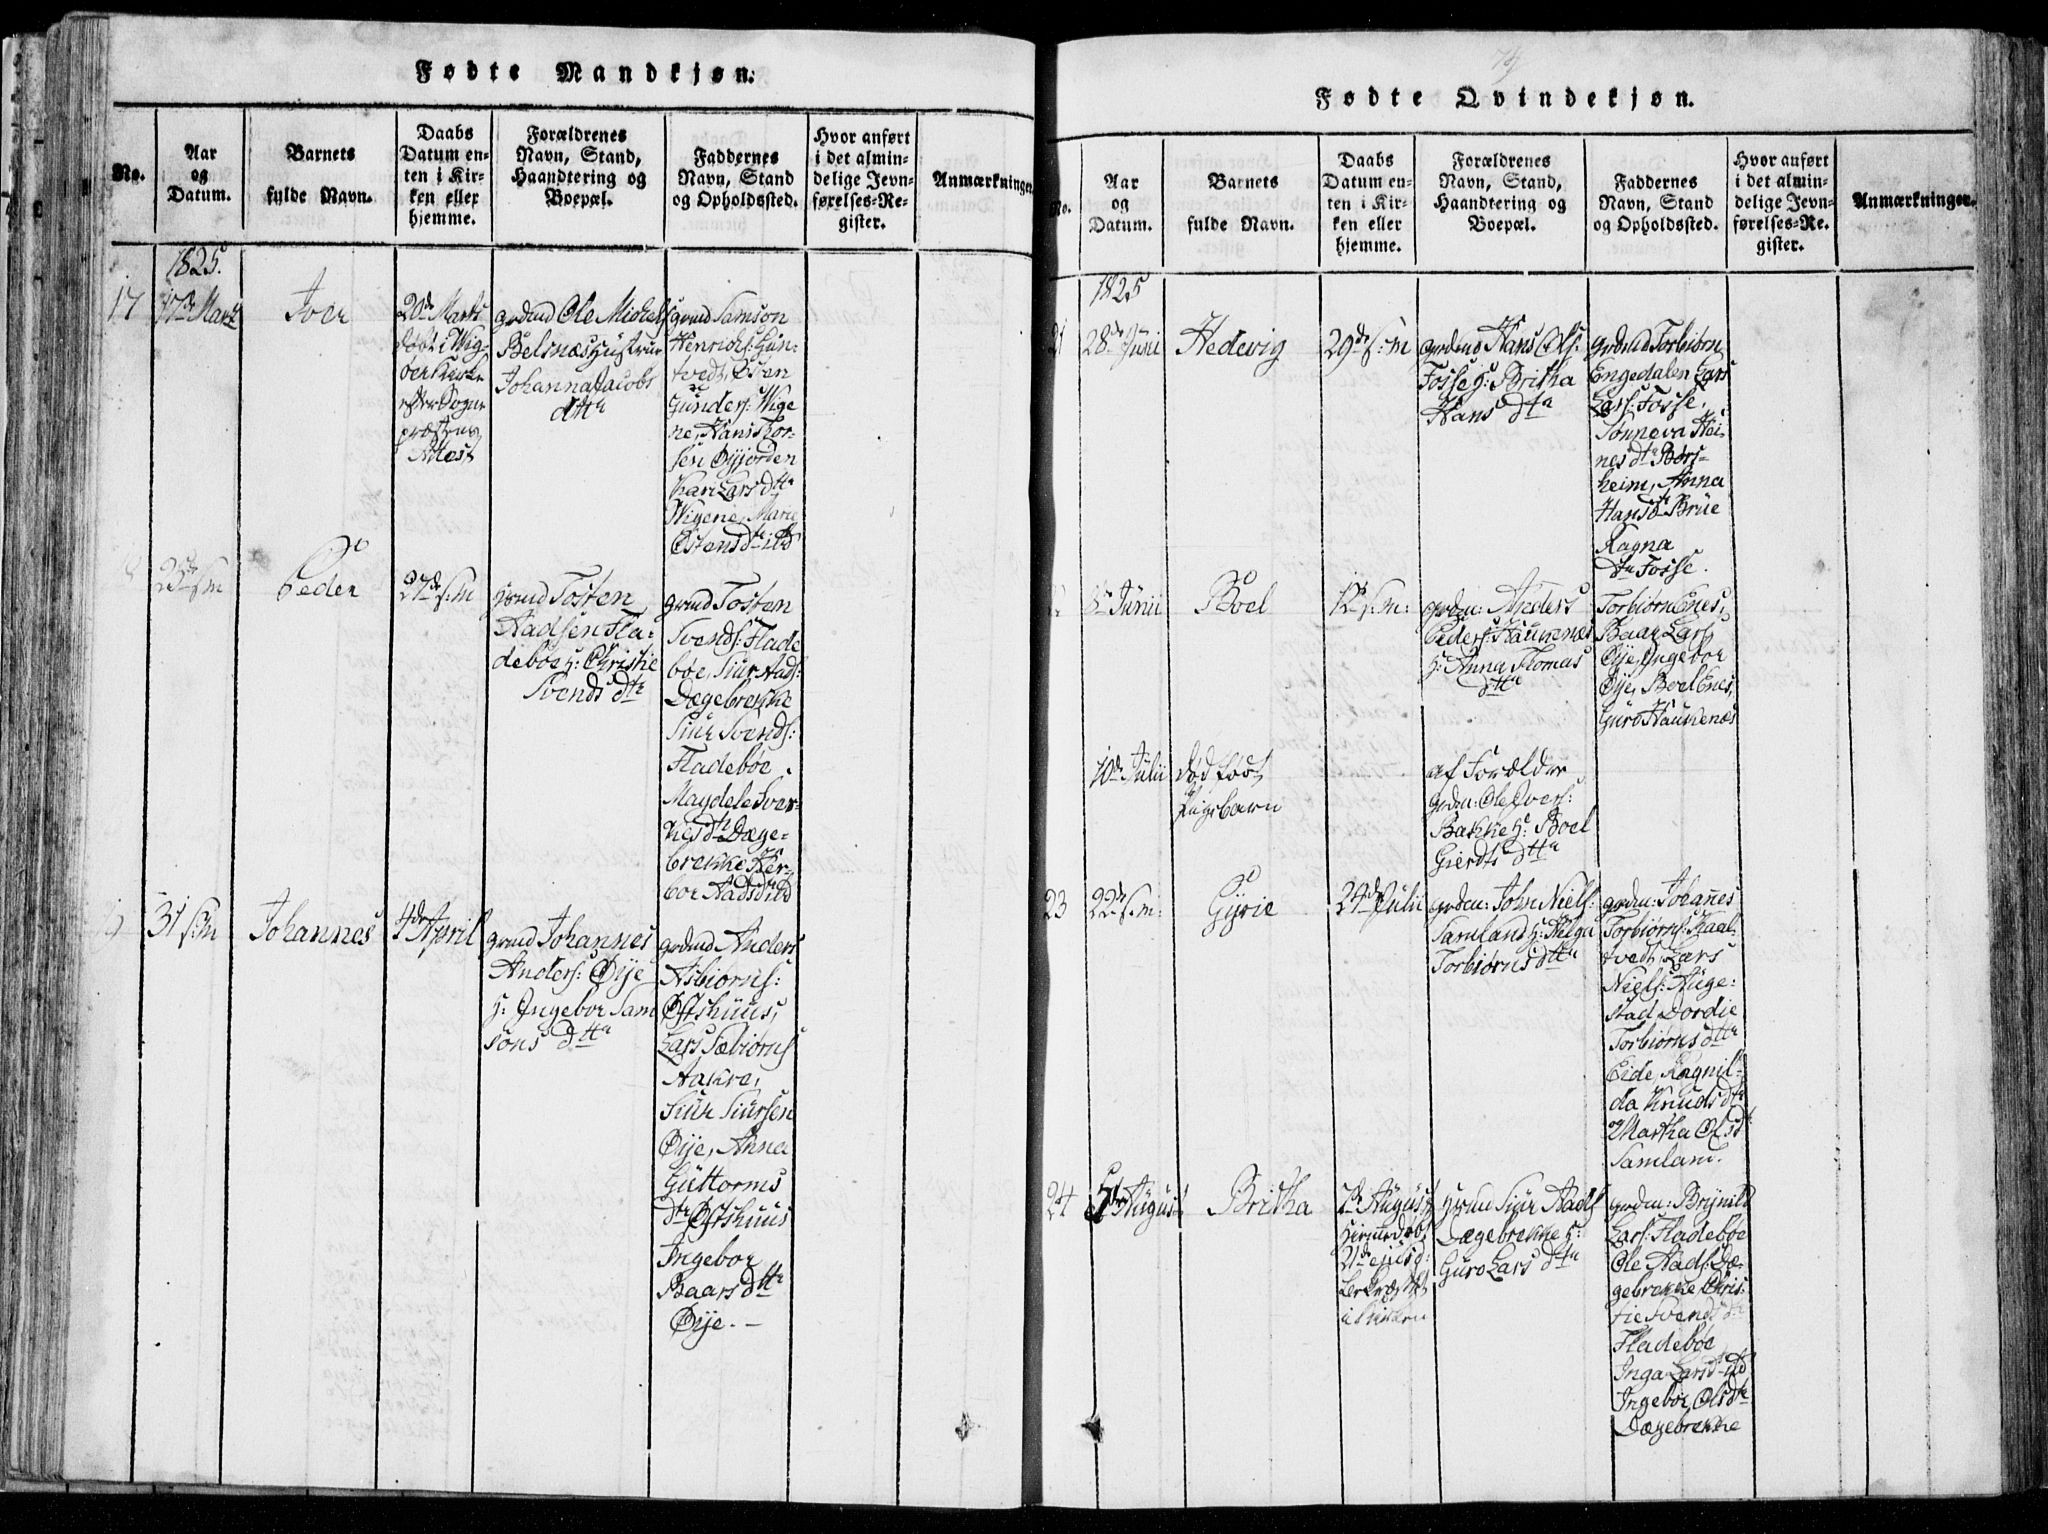 Fødte Mandkjøn.
No.
Aar
og
Datum.
Barnets
fulde Navn.
Daabs
Datum en-
ten i Kir-
ken eller
hjemme.
Forældrenes
Navn, Stand,
Haandtering og
Boepæl.
Faddernes
Navn, Stand
og Opholdssted.
Hvor anført
i det almin-
delige Jevn-
førelses-Re-
gister.
Anmærkninger.
1825.
17
17de Marts
Iver
20de Marts
døbt i Wig-
øer Kirke
efter Sogne
præstens
Attest
grdmd Ole Michels
Belsnæs Hustrue
Johanna Jacobs
dttr
grmd Samson
Henrichs: Hun-
tvedt, Østen
Gunders: Wige
ne, Hans Thor-
sen Øyjorden
Kari Lars dttr
Wigene, Marie
Østens dtr ibd
25de s:m
Peder
27de s:m
grmd Tosten
Aadsen Fla-
debøe H: Christie
Svends dtr
grmd Tosten
Svends: Flade
bøe, Siur Aads:
Dægebrekke
Siur Svends:
Fladebøe
Magdele Sver-
kes dtr Dæge-
brekke Her-
bor Aadsdtr ibd
31 s:m
Johannes
4de April
grmd Johannes
Anders: Øije
H: Ingebor Sam
sons dttr
grdmd Anders
Asbiørns:
Øfshuus,
Lars Sæbiørns
Aakre,
Siur Siursen
Øije, Anna
Guttorms
dtr Øfshuus
Ingebor
Baars dttr
Øije. -
74
Fødte Qvindekjøn.
No.
Aar
og
Datum.
Barnets
fulde Navn.
Daabs
Datum en-
ten i Kir-
ken eller
hjemme.
Forældrenes
Navn, Stand,
Haandtering og
Boepæl.
Faddernes
Navn, Stand
og Opholdssted.
Hvor anført
i det almin-
delige Jevn-
førelses-Re-
gister.
Anmærkninger.
1825
21
28de Juni
Hedevig
29de s:m
grdmd Hans Ols:
Fosse H: Britha
Hans dtr
grdmd Torbiørn
Engedalen Lars
Lars: Fosse,
Sønneva Hei-
nes dtr Børs-
heim, Anna
Hansd Brue
Ragna
dtr Fosse.
Junii
Boel
12 s:m:
grdm: Anders
Peders: Haukenæs
H: Anna Thomas
dttr
Torbiørn Enes,
Baar Lars
Øije, Ingebor
Øije, Boel Enes,
Guro Haukenæs
10de Julii
død født
Pigebarn
af Forældre
grdm: Ole Ivers:
Bakke H: Boel
Gierdts dttr
23
22de s:m:
Gyrie
24de Julii
grdm: Johs Niels:
Samland H: Helga
Torbiørns dttr
grdm: Johanes
Torbiørns: Kaal
tvedt, Lars
Niels: Auge-
stad, Dordie
Torbiørns dttr
Eide, Ragnil-
da Knuds dtr
og Martha Olsd
Samland.
24
5te August
Britha
7de August
hiemedøbt
21de ejusd:
i Kirken
grmd Siur Aads
Dægebrekke H:
Guro Lars dtr
grdm: Brynild
Lars: Fladebøe
Ole Aads: Dæ-
gebrekke, Chris-
tie Svends dtr
Fladebøe
Inga Lars dtr ibd
Ingebor Ols dtr
Dægebrekke